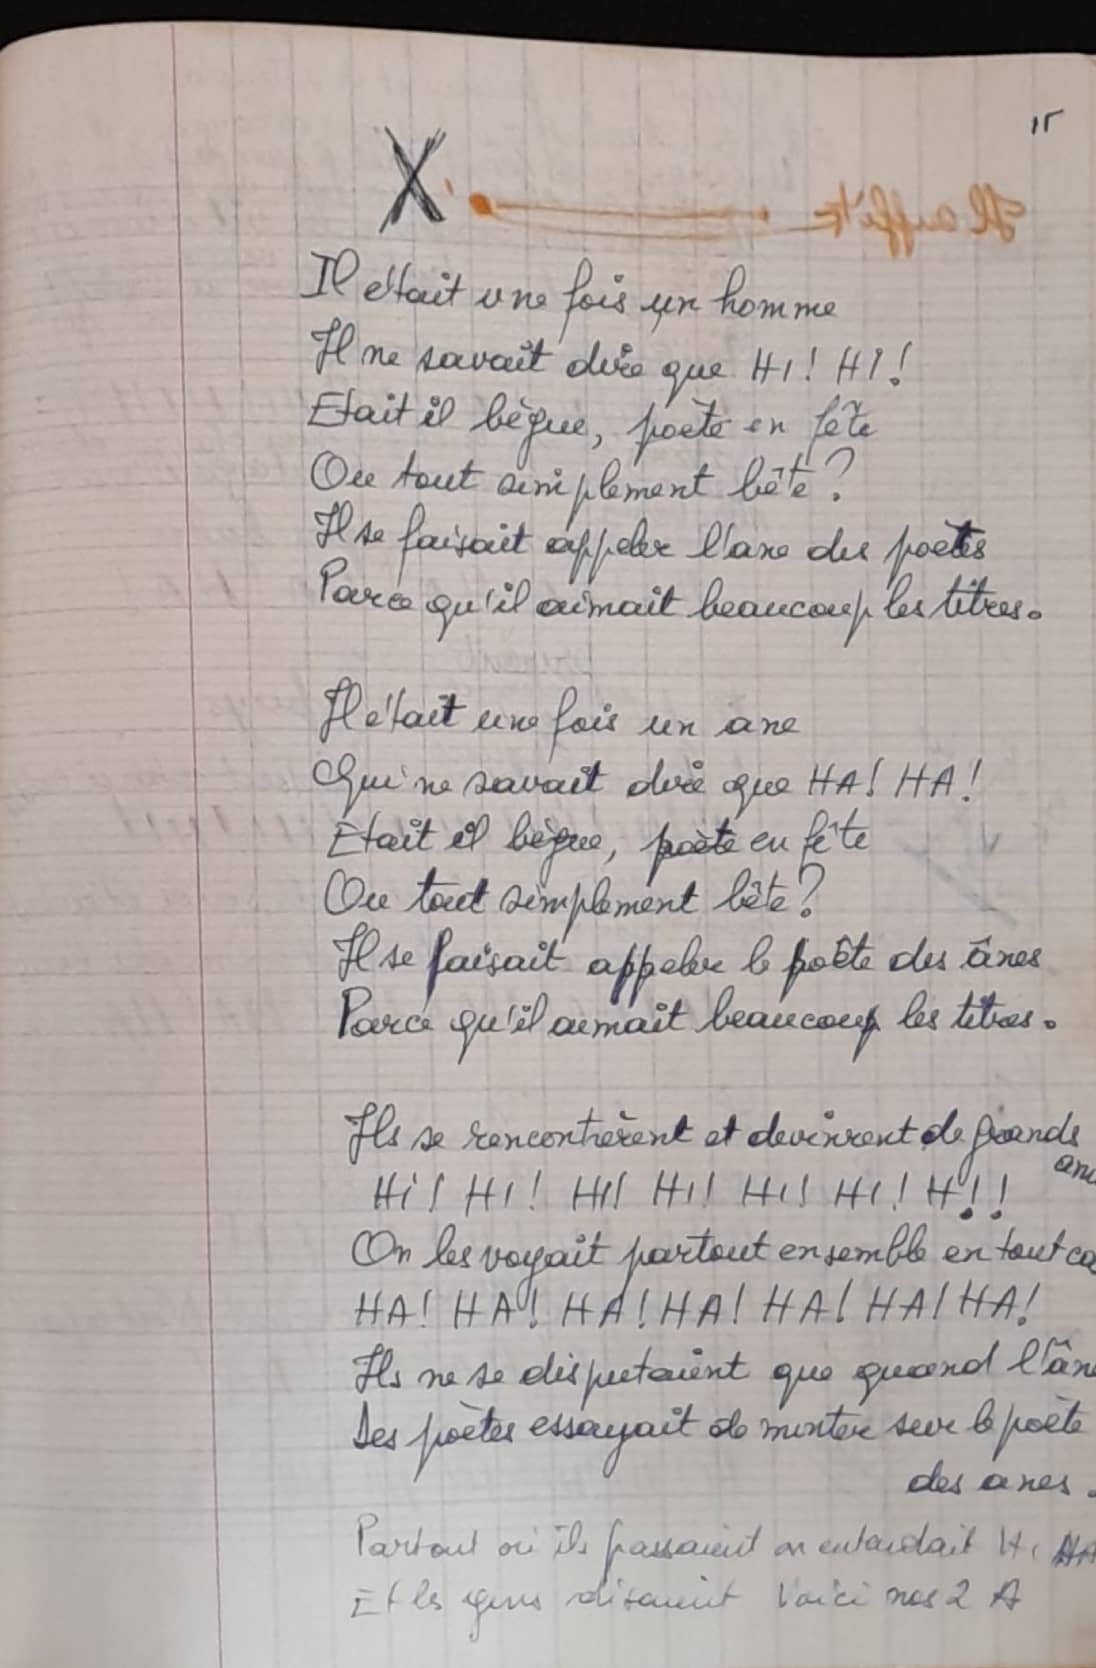 15
X
Il était une fois un homme
Il ne savait dire que HI! HI!
Etait il bègue, poète en fête
Ou tout simplement bête?
Il se faisait appeler l'ane des poètes
Parce qu'il aimait beaucoup les titres.
Il était une fois un ane
Qui ne savait dire que HA! HA!
Etait il bègue, poète en fête
Ou tout simplement bête?
Il se faisait appeler le poète des ânes
Parce qu'il aimait beaucoup les titres.
Ils se rencontrèrent et devinrent de grands
ami
Hi! HI! HI! HI! HI! HI! H!!
On les voyait partout ensemble en tout ca
HA! HA! HA! HA! HA! HA! HA!
Ils ne se disputaient que quand l'âne
Des poètes essayait de monter sur le poète
des anes.
Partout où ils passaient on entendait HI HA
Et les gens disaient Voici nos 2 A